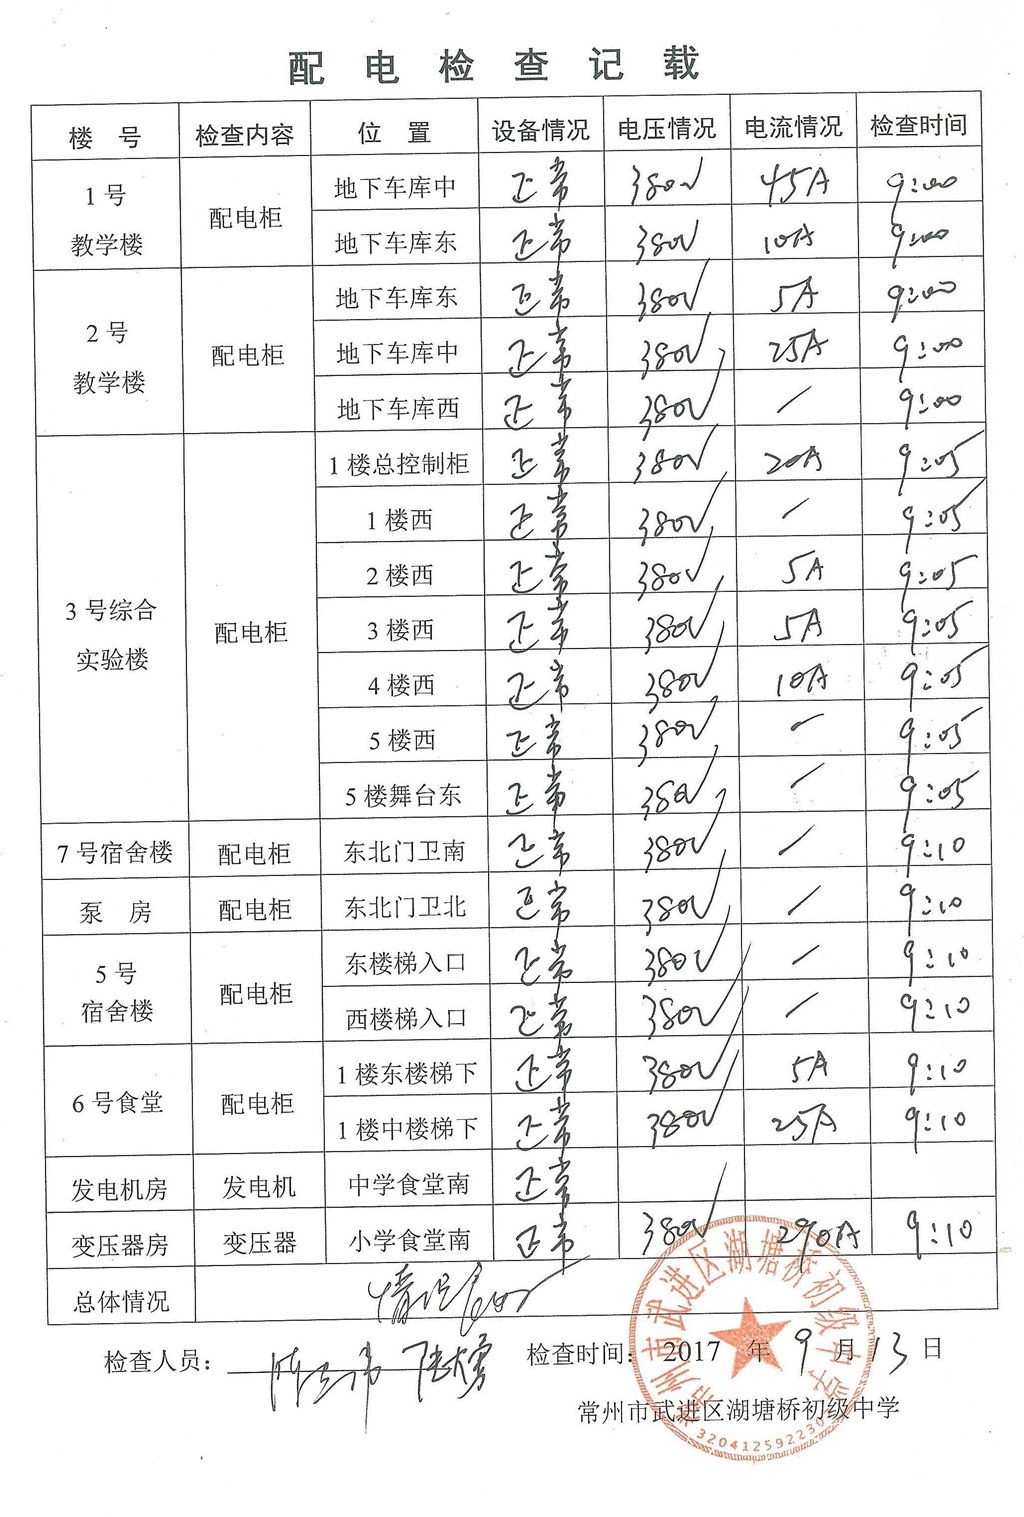 配电检查记载
楼 号 检查内容 位 置 设备情况 电压情况 电流情况 检查时间
1号教学楼 配电柜 地下车库中 正常 380V 45A 9:00
地下车库东 正常 380V 10A 9:00
2号教学楼 配电柜 地下车库东 正常 380V 5A 9:00
地下车库中 正常 380V 25A 9:00
地下车库西 正常 380V / 9:00
3号综合实验楼 配电柜 1楼总控制柜 正常 380V 20A 9:05
1楼西 正常 380V / 9:05
2楼西 正常 380V 5A 9:05
3楼西 正常 380V 5A 9:05
4楼西 正常 380V 10A 9:05
5楼西 正常 380V / 9:05
5楼舞台东 正常 380V / 9:05
7号宿舍楼 配电柜 东北门卫南 正常 380V / 9:10
泵 房 配电柜 东北门卫北 正常 380V / 9:10
5号宿舍楼 配电柜 东楼梯入口 正常 380V / 9:10
西楼梯入口 正常 380V / 9:10
6号食堂 配电柜 1楼东楼梯下 正常 380V 5A 9:10
1楼中楼梯下 正常 380V 25A 9:10
发电机房 发电机 中学食堂南 正常
变压器房 变压器 小学食堂南 正常 380V 290A 9:10
总体情况 情况良好
检查人员： 检查时间： 2017 年 9 月 13 日
常州市武进区湖塘桥初级中学
常州市武进区湖塘桥初级中学